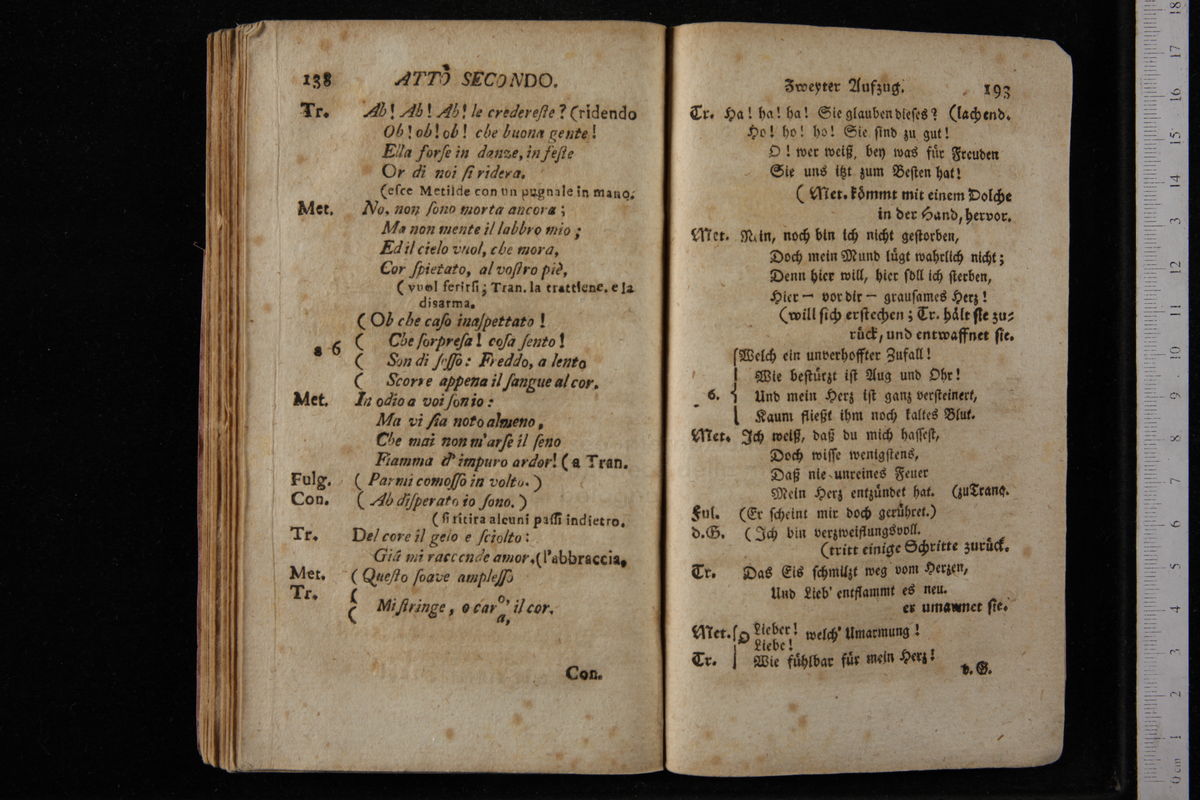 138 ATTO SECONDO.
Tr. Ah! Ah! Ah! le credereſte? (ridendo
Oh! oh! oh! che buona gente!
Ella forſe in danze, in feſte
Or di noi ſi ridera.
(eſce Metilde con un pugnale in mano.
Met. No, non ſono morta ancora;
Ma non mente il labbro mio;
Ed il cielo vuol, che mora,
Cor ſpietato, al voſtro piè,
(vuol ferirſi; Tran. la trattiene, e la
disarma.
(Oh che caſo inaſpettato!
( Che ſorpreſa! coſa ſento!
a 6
( Son di ſeſſo: Freddo, a lento
( Scorre appena il ſangue al cor.
Met. In odio a voi ſon io:
Ma vi ſia noto almeno,
Che mai non m'arſe il ſeno
Fiamma d' impuro ardor! (a Tran.
Fulg. (Parmi comoſſo in volto.)
Con. (Ah diſperato io ſono.)
(ſi ritira alcuni paſſi indietro.
Tr. Del core il gelo e ſciolto:
Giá mi raccende amor. (l'abbraccia.
Met. (Queſto ſoave ampleſſo
Tr. ( Mi ſtringe, o car o, a, il cor.
Con.
Zweyter Aufzug. 193
Tr. Ha! ha! ha! Sie glauben dieſes? (lachend.
Ho! ho! ho! Sie ſind zu gut!
O! wer weiß, bey was für Freuden
Sie uns itzt zum Beſten hat!
(Met. kömmt mit einem Dolche
in der Hand, hervor.
Met. Nein, noch bin ich nicht geſtorben,
Doch mein Mund lügt wahrlich nicht;
Denn hier will, hier ſoll ich ſterben,
Hier — vor dir — grauſames Herz!
(will ſich erſtechen; Tr. hält ſie zu-
rück, und entwaffnet ſie.
Welch ein unverhoffter Zufall!
Wie beſtürzt iſt Aug und Ohr!
6. Und mein Herz iſt ganz verſteinert,
Kaum fließt ihm noch kaltes Blut.
Met. Ich weiß, daß du mich haſſeſt,
Doch wiſſe wenigſtens,
Daß nie unreines Feuer
Mein Herz entzündet hat. (zu Tranq.
Ful. (Er ſcheint mir doch gerühret.)
d. G. (Ich bin verzweiflungsvoll.
(tritt einige Schritte zurück.
Tr. Das Eis ſchmilzt weg vom Herzen,
Und Lieb' entflammt es neu.
er umarmet ſie.
Met. O Lieber! Liebe! welch' Umarmung!
Tr. Wie fühlbar für mein Herz!
d. G.